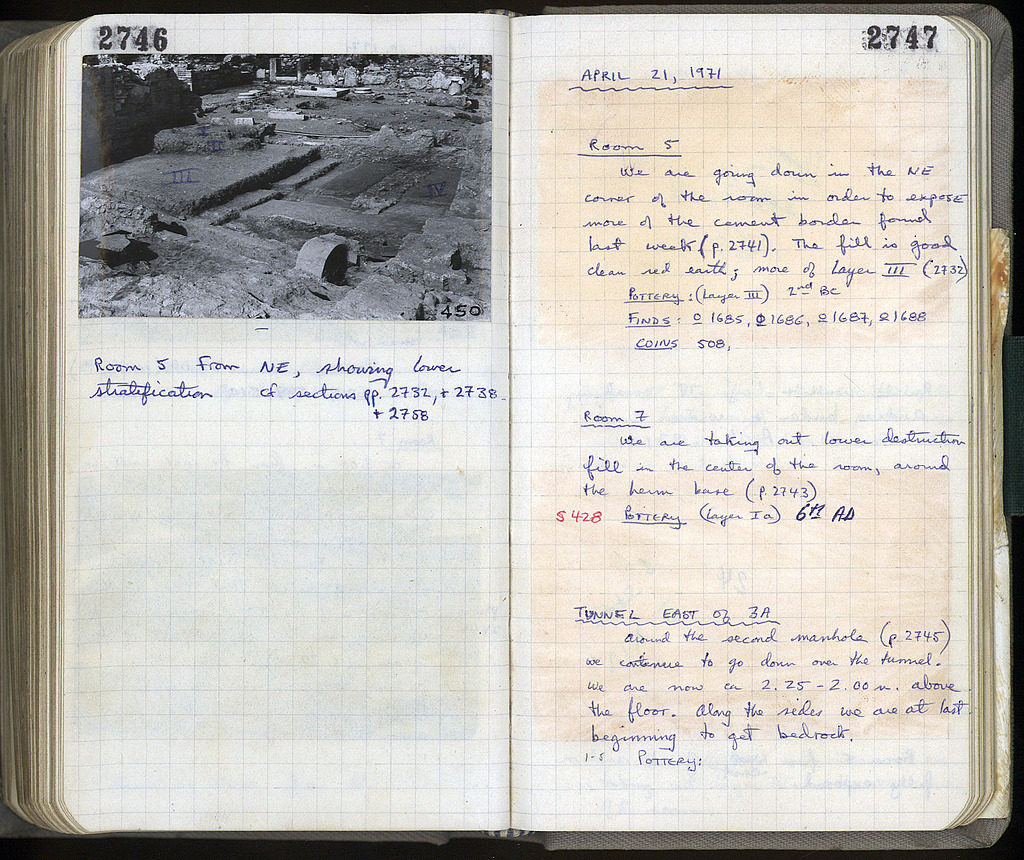 2746
III
IV
450
Room 5 From NE, showing lower
stratification cf sections pp. 2732, + 2738
+ 2758
2747
APRIL 21, 1971
Room 5
We are going down in the NE
corner of the room in order to expose
more of the cement border found
last week (p. 2741). The fill is good
clean red earth; more of Layer III (2732)
POTTERY: (Layer III) 2nd BC
FINDS: 1685, 1686, 1687, 1688
COINS 508,
Room 7
We are taking out lower destruction
fill in the center of the room, around
the herm base (p. 2743)
S 428 POTTERY (Layer Ia) 6th AD
TUNNEL EAST OF 3A
Around the second manhole (p. 2745)
we continue to go down over the tunnel.
We are now ca 2.25 - 2.00 m. above
the floor. Along the sides we are at last
beginning to get bedrock.
1-5 POTTERY: